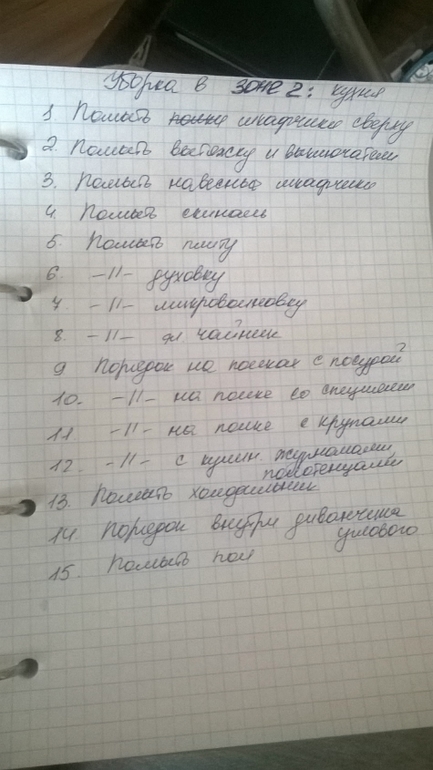 Уборка в зоне 2: кухня
1 Помыть полки шкафчики сверху
2. Помыть вытяжку и выключатели
3. Помыть навесные шкафчики
4. Помыть скиналь
5. Помыть плиту
6. –//– духовку
7. –//– микроволновку
8. –//– эл. чайник
9 Порядок на полках с посудой
10. –//– на полке со специями
11 –//– на полке с крупами
12. –//– с кулин. журналами,
полотенцами
13. Помыть холодильник
14. Порядок внутри диванчика
углового
15. Помыть пол